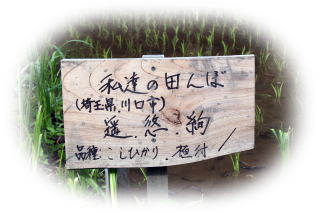 私達の田んぼ
(埼玉県川口市)
遥.悠.絢
品種:こしひかり.植付 /